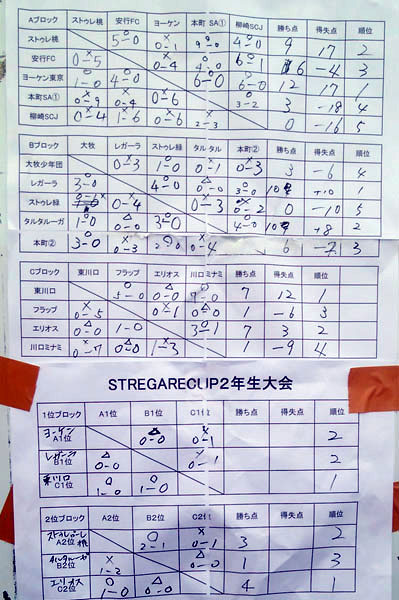 Aブロック ストゥレ桃 安行FC ヨーケン 本町 SA① 柳崎SCJ 勝ち点 得失点 順位
ストゥレ桃 ○ 5-0 × 0-1 ○ 9-0 ○ 4-0 9 17 2
安行FC × 0-5 × 0-4 ○ 4-0 ○ 6-1 6 -4 3
ヨーケン東京 ○ 1-0 ○ 4-0 ○ 6-0 ○ 6-0 12 17 1
本町SA① × 0-9 × 0-4 × 0-6 ○ 3-2 3 -18 4
柳崎SCJ × 0-4 × 1-6 × 0-6 × 2-3 0 -16 5
Bブロック 大牧 レガーラ ストゥレ緑 タルタル 本町② 勝ち点 得失点 順位
大牧少年団 × 0-3 ○ 1-0 × 0-1 × 0-3 3 -6 4
レガーラ ○ 3-0 ○ 4-0 △ 0-0 ○ 3-0 10 +10 1
ストゥレ緑 × 0-1 × 0-4 × 0-3 × 0-2 0 -10 5
タルタルーガ ○ 1-0 △ 0-0 ○ 3-0 ○ 4-0 10 +8 2
本町② ○ 3-0 × 0-3 ○ 2-0 × 0-4 6 3
Cブロック 東川口 フラップ エリオス 川口ミナミ 勝ち点 得失点 順位
東川口 ○ 5-0 △ 0-0 ○ 7-0 7 12 1
フラップ × 0-5 × 0-1 △ 0-0 1 -6 3
エリオス △ 0-0 ○ 1-0 ○ 3-1 7 3 2
川口ミナミ × 0-7 △ 0-0 × 1-3 1 -9 4
STREGARECUP2年生大会
1位ブロック A1位 B1位 C1位 勝ち点 得失点 順位
ヨーケン △ 0-0 × 0-1 2
A1位
レガーラ △ 0-0 × 0-1 2
B1位
東川口 ○ 1-0 ○ 1-0 1
C1位
2位ブロック A2位 B2位 C2位 勝ち点 得失点 順位
ストゥレ桃 ○ 2-1 × 0-1 3 2
A2位
タルタルーガ × 1-2 △ 0-0 1 3
B2位
エリオス ○ 1-0 △ 0-0 4 1
C2位